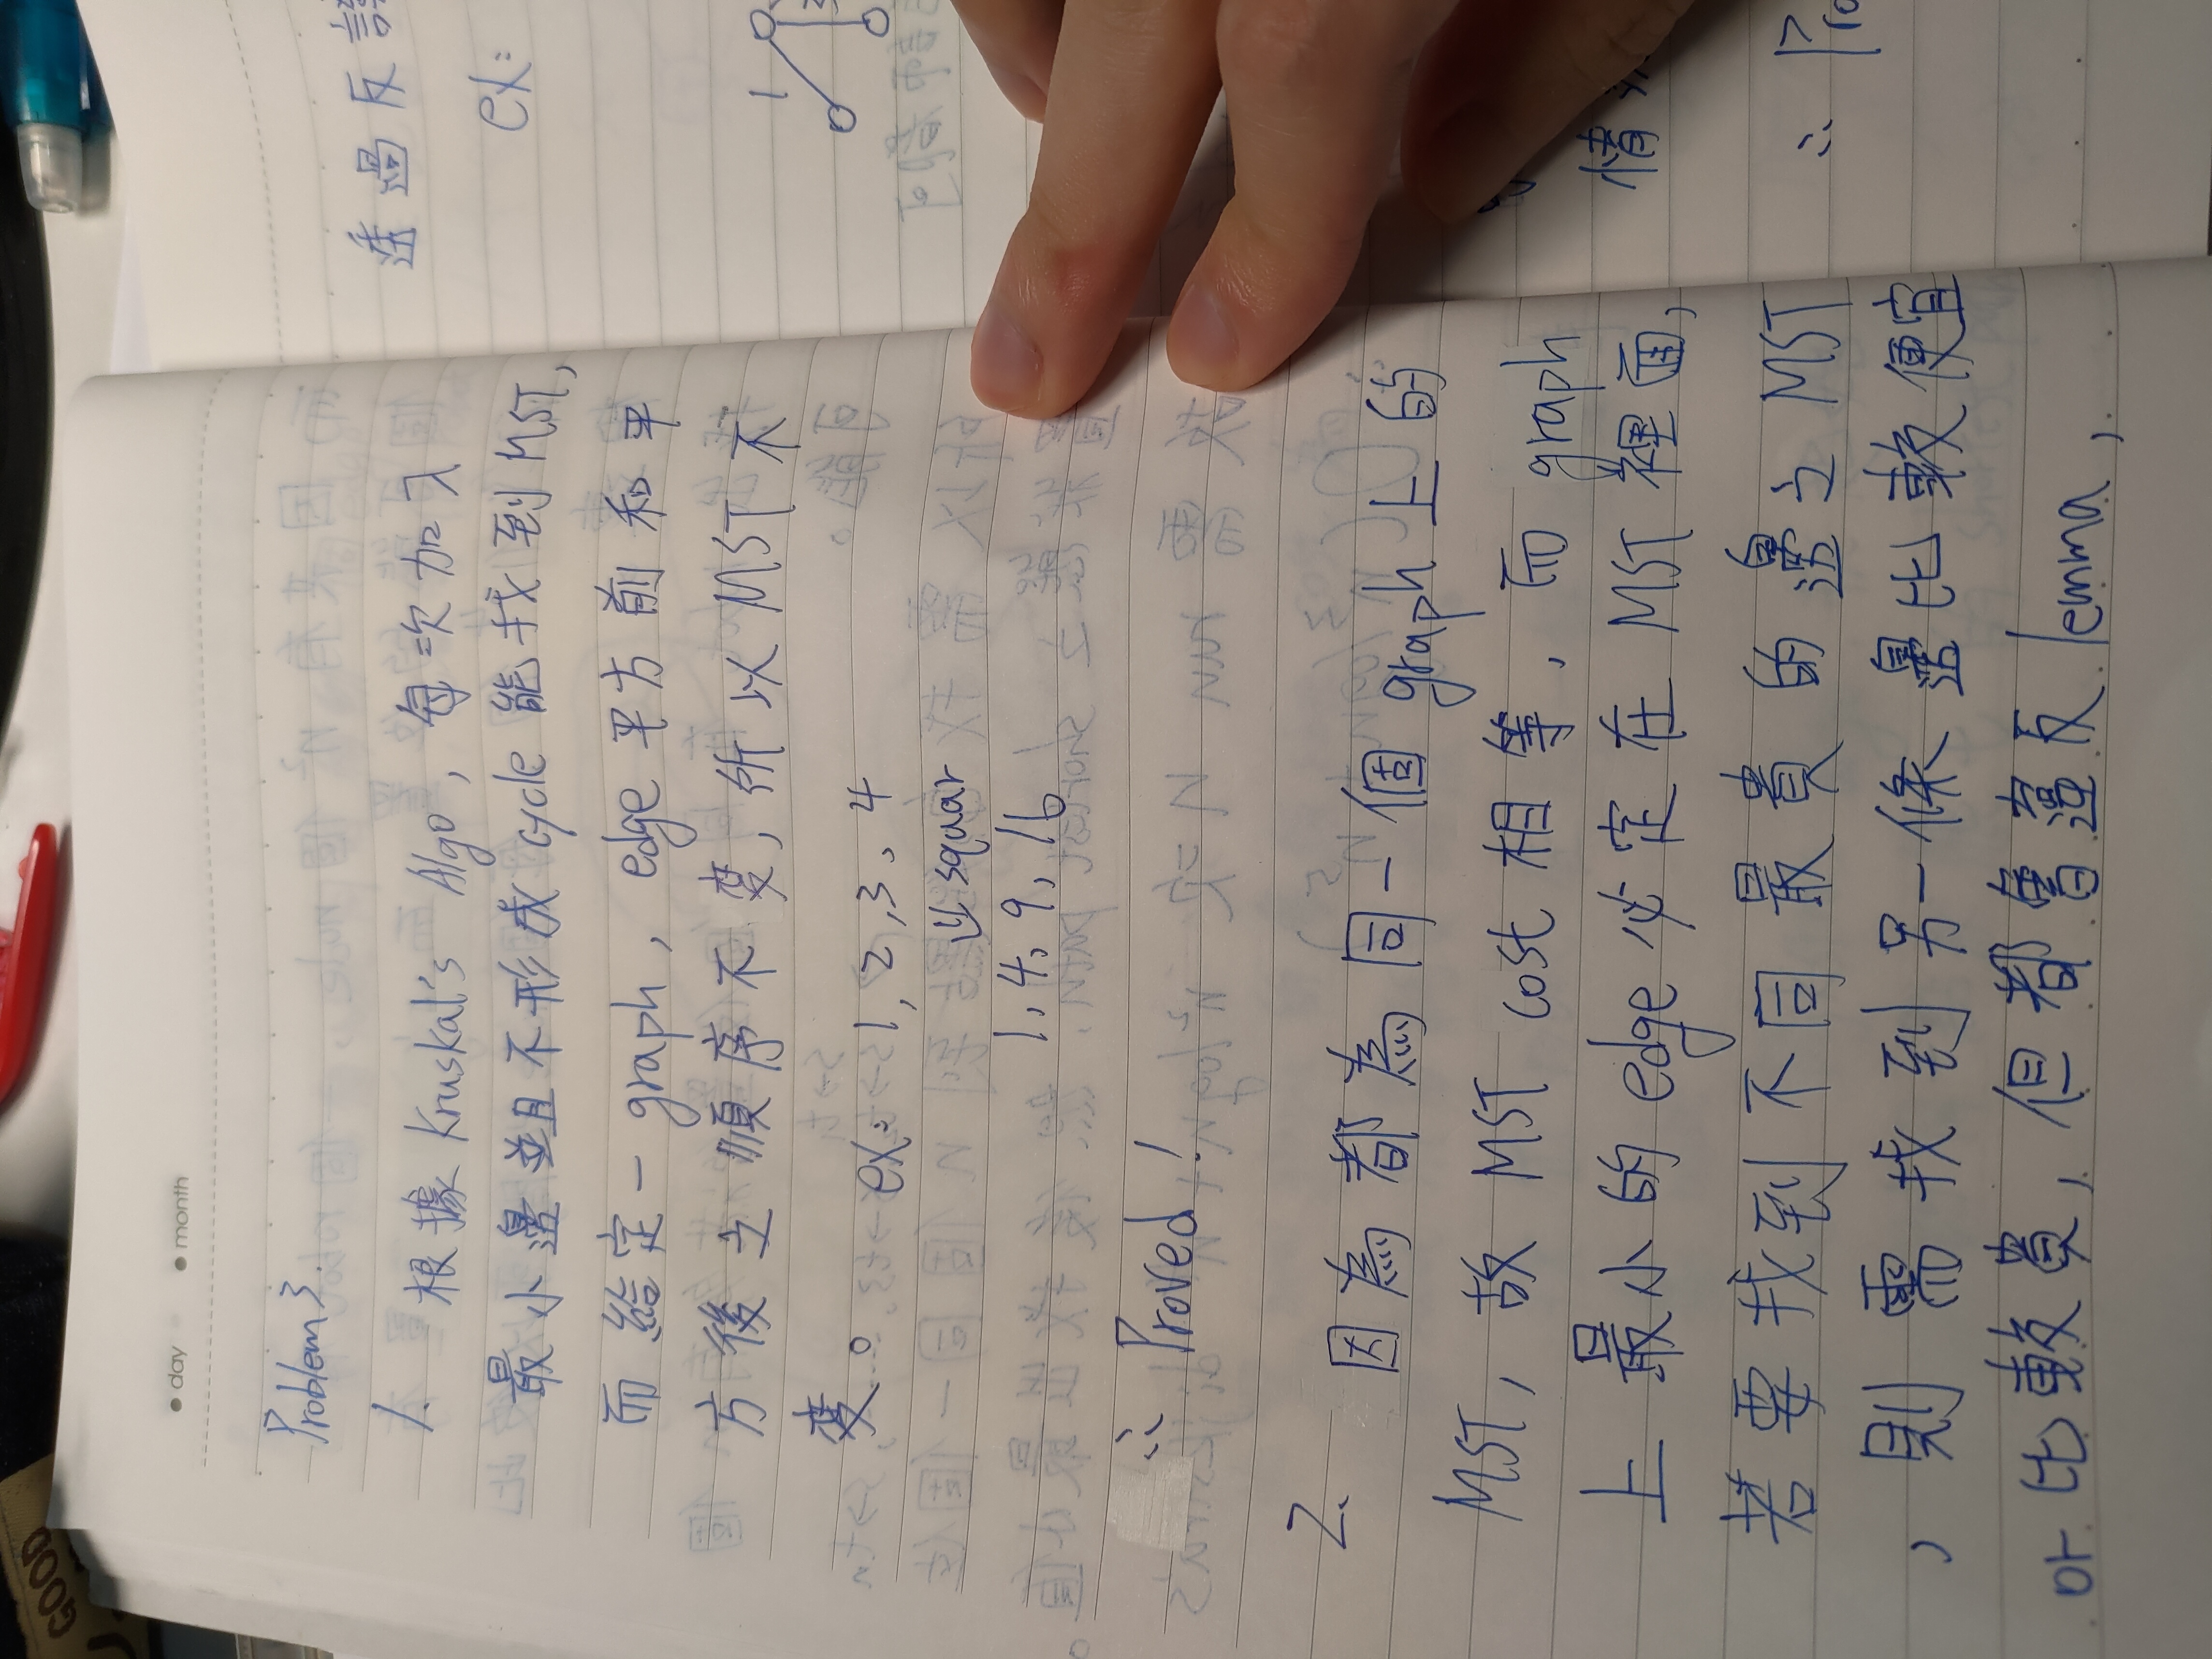 GOOD
day month
Problem 3.
1. 根據 Kruskal's Algo, 每次加入
最小邊並且不形成 cycle 能找到 MST,
而給定一 graph, edge 平方前和平
方後之順序不变, 所以 MST 不
变。 ex: 1, 2, 3, 4
⇓ squar
1, 4, 9, 16
∴ Proved!
2. 因為都為同一個 graph 上的
MST, 故 MST cost 相等, 而 graph
上最小的 edge 必定在 MST 裡面,
若要找到不同最貴的邊之 MST
, 則需找到另一條邊比較便宜
or 比較貴, 但都會違反 lemma,
透過反
ex:
1
情
∴ Pro